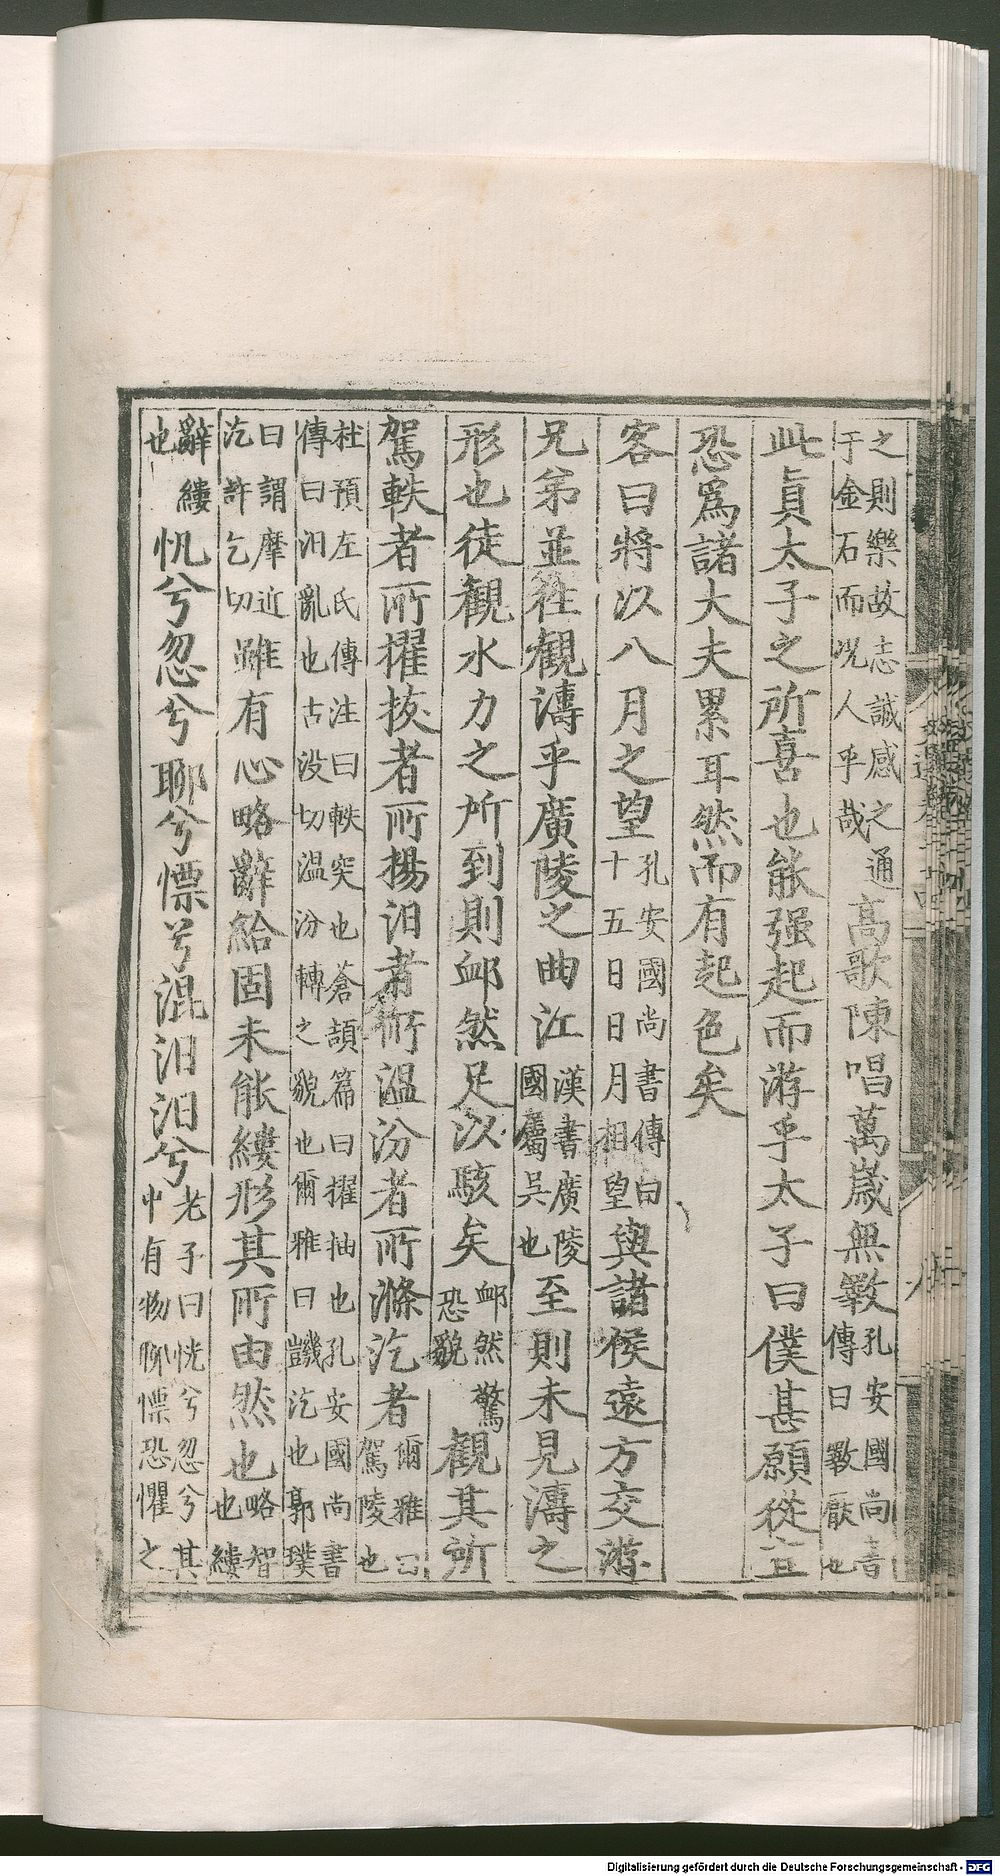 之則樂故志誠感之通
于金石而况人乎哉
高歌陳唱萬歲無斁
孔安國尚書
傳曰斁厭也
此真太子之所喜也能强起而游乎太子曰僕甚願從宜
恐爲諸大夫累耳然而有起色矣
客曰將以八月之望
孔安國尚書傳曰
十五日日月相望
與諸侯遠方交游
兄弟並往觀濤乎廣陵之曲江
漢書廣陵
國屬吳也
至則未見濤之
形也徒觀水力之所到則䘏然足以駭矣
䘏然驚
恐貌
觀其所
駕軼者所擢拔者所揚汨者所溫汾者所滌汔者
爾雅曰
駕陵也
杜預左氏傳注曰軼突也蒼頡篇曰擢抽也孔安國尚書
傳曰汨亂也古没切溫汾轉之貌也爾雅曰譏汔也郭璞
曰謂摩近
汔許乞切
雖有心略辭給固未能縷形其所由然也
略智
也縷
辭縷
也
怳兮忽兮聊兮慄兮混汨汨兮
老子曰恍兮忽兮其
中有物聊慄恐懼之
Digitalisierung gefördert durch die Deutsche Forschungsgemeinschaft - DFG